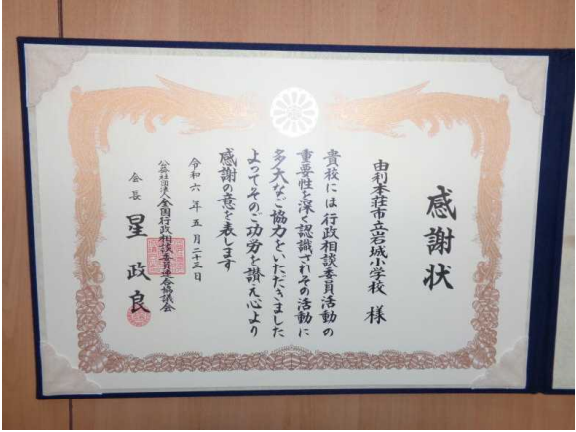 感謝状
由利本荘市立岩城小学校 様
貴校には行政相談委員活動の
重要性を深く認識されその活動に
多大なご協力をいただきました
よってそのご功労を讃え心より
感謝の意を表します
令和六年五月二十三日
公益社団法人全国行政相談委員連合協議会
会長 星政良